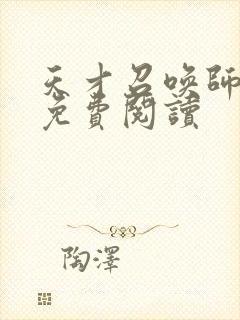 天才召喚師
免費閱讀
陶澤